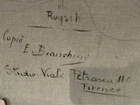 Ruysch
Copió
E. Bianchini
Studio Viale Petrarca No
Firenze